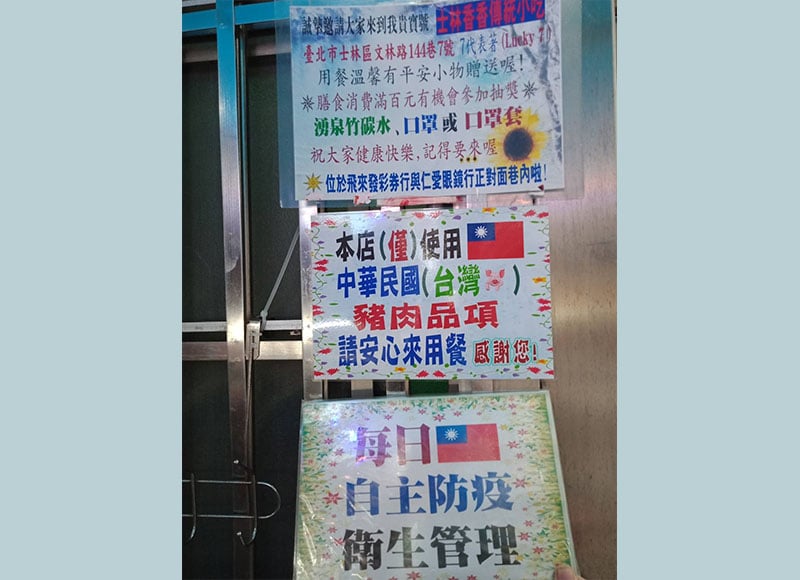 誠摯邀請大家來到我貴寶號 士林香香傳統小吃
臺北市士林區文林路144巷7號 7代表著(Lucky 7)
用餐溫馨有平安小物贈送喔!
※膳食消費滿百元有機會參加抽獎※
湧泉竹碳水、口罩或口罩套
祝大家健康快樂,記得要來喔
位於飛來發彩券行與仁愛眼鏡行正對面巷內啦!
本店(僅)使用
中華民國(台灣)
豬肉品項
請安心來用餐 感謝您!
每日
自主防疫
衛生管理